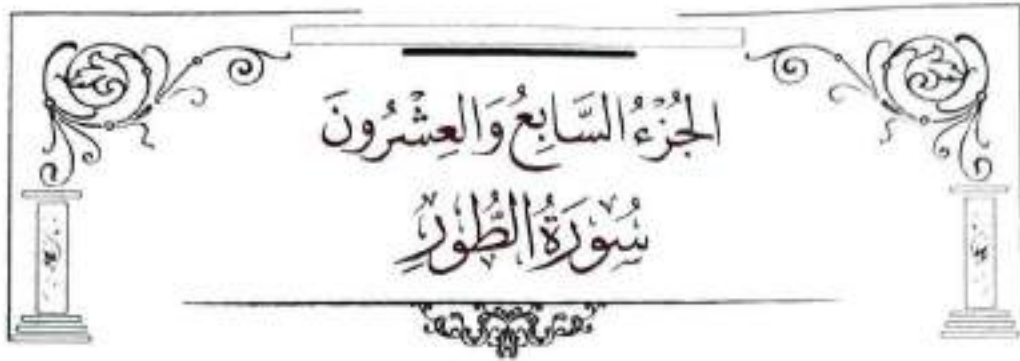 الجُزْءُ السَّابِعُ وَالعِشْرُونَ
سُورَةُ الطُّورِ